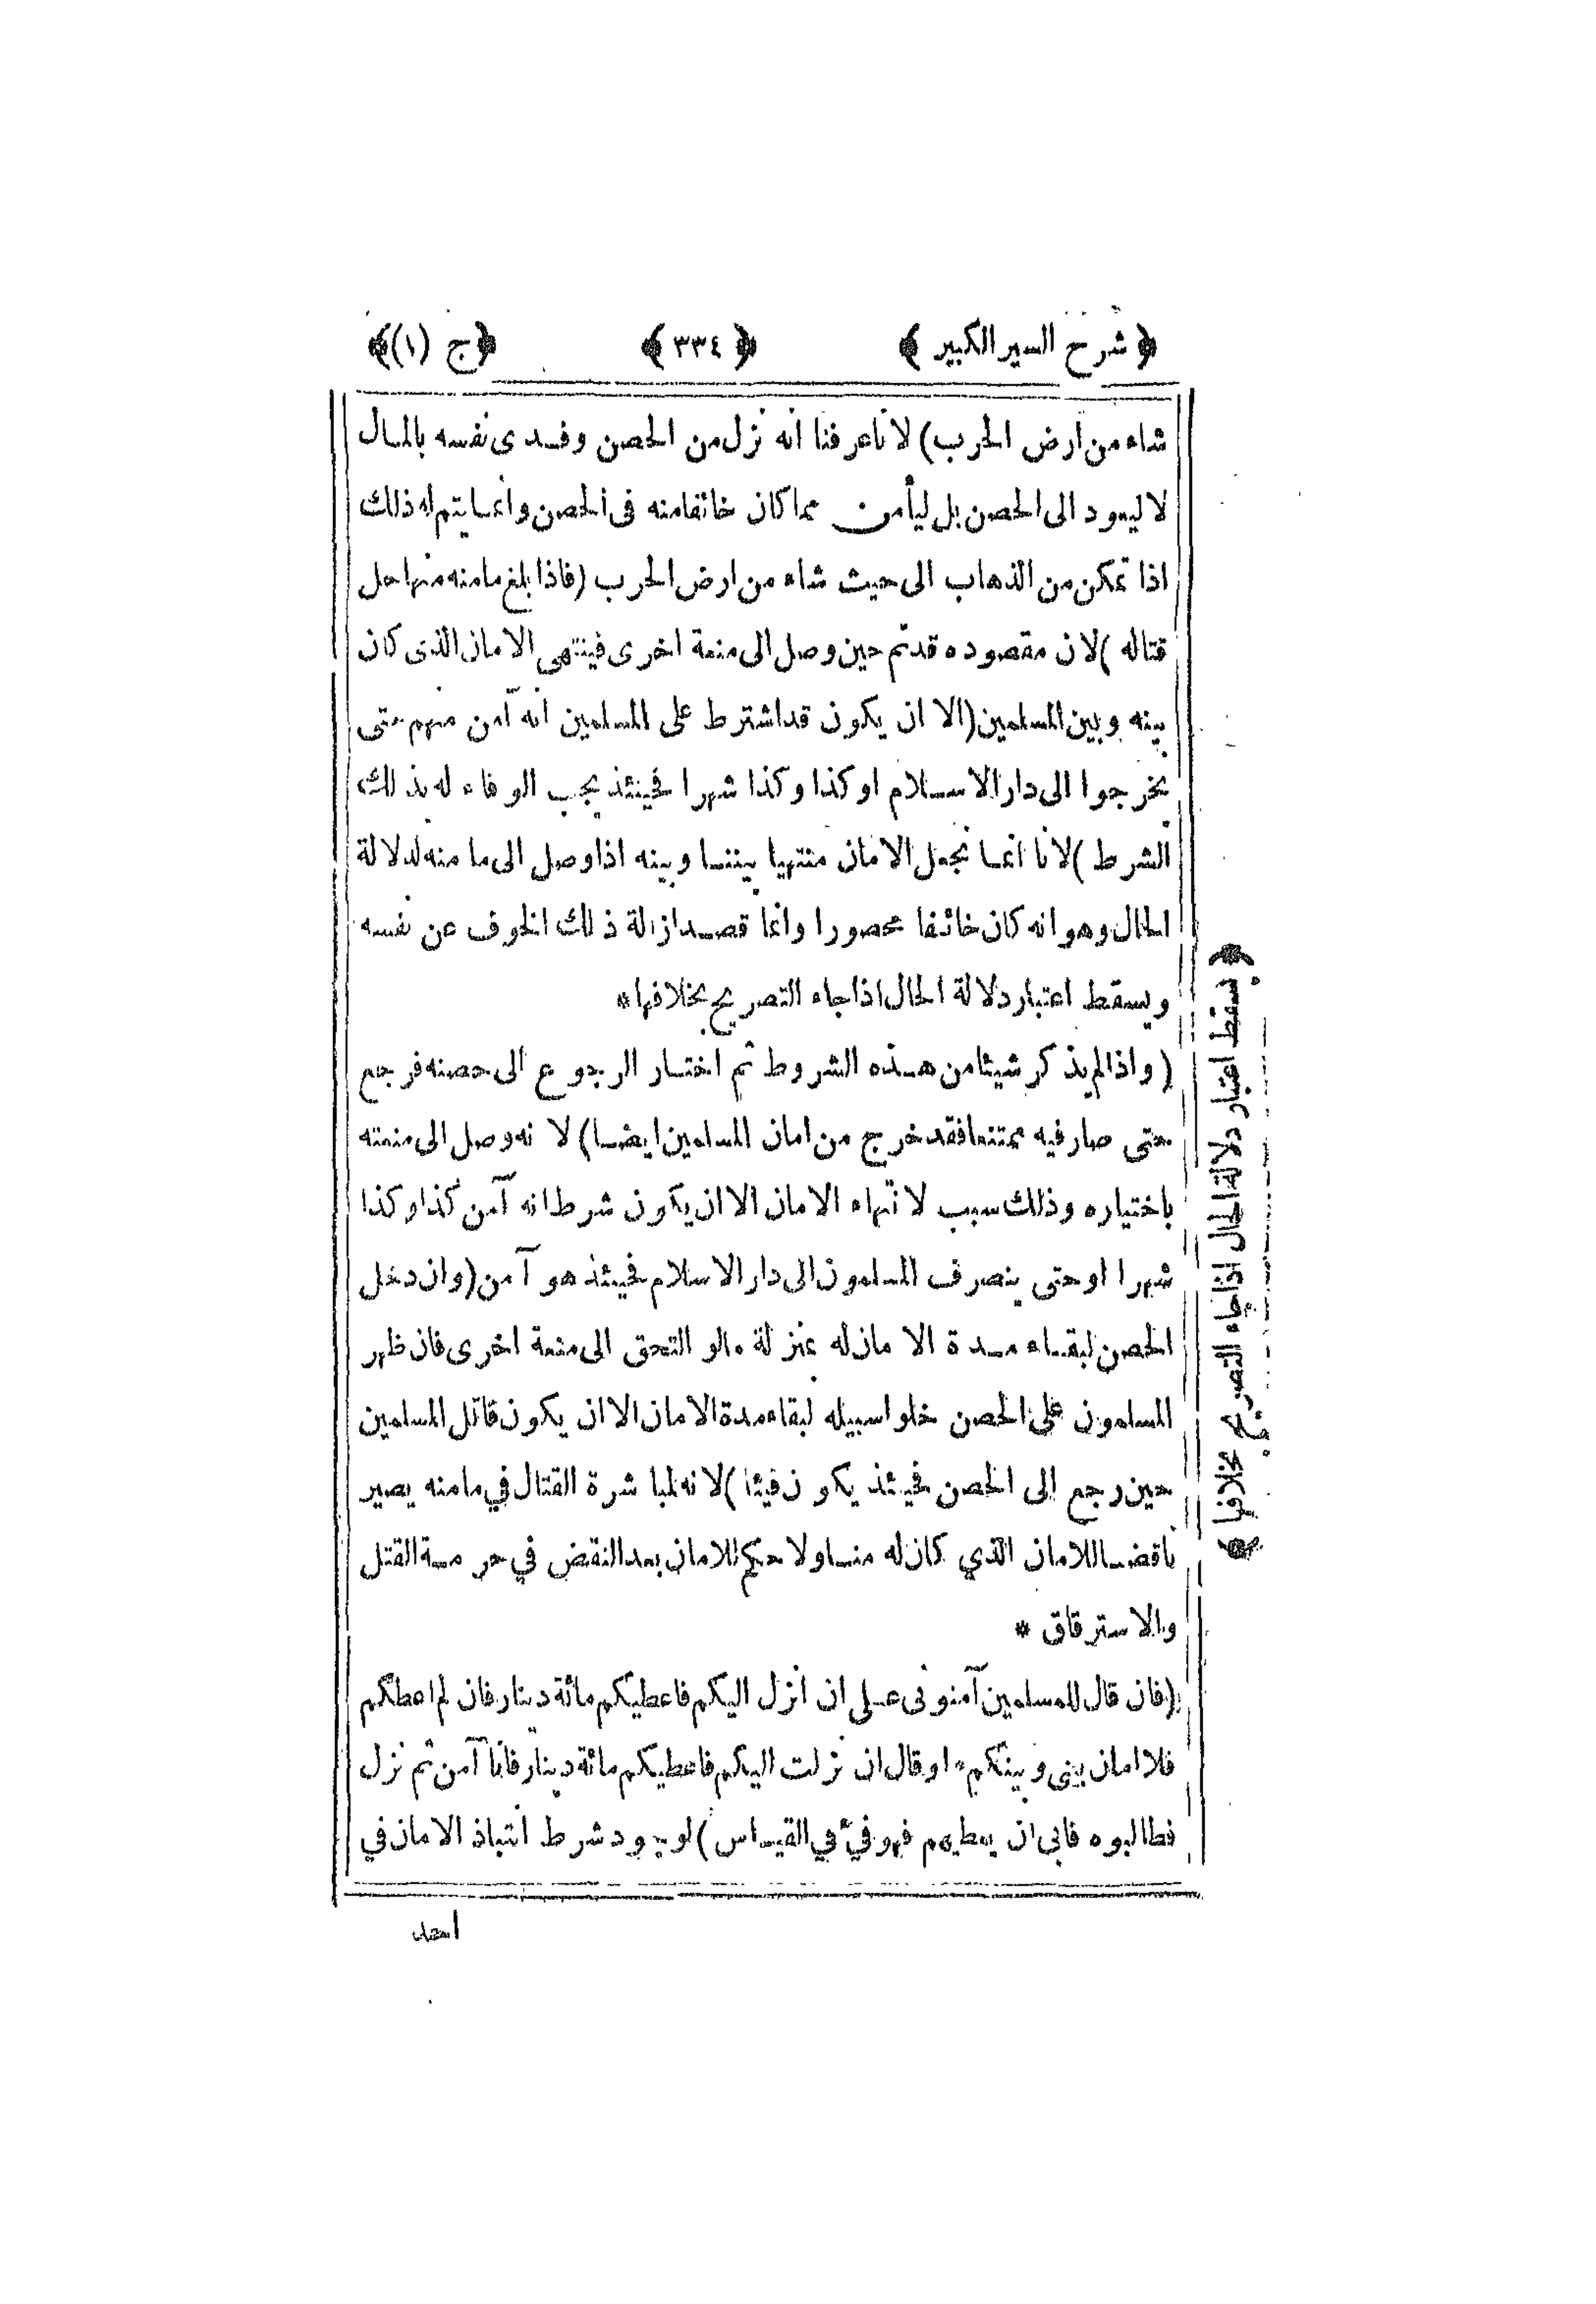 ﴿ شرح السير الكبير ﴾ ﴿ ٣٣٤ ﴾ ﴿ ج (١) ﴾
شاء من ارض الحرب) لانا عرفنا انه نزل من الحصن وفدى نفسه بالمال
لا ليعود الى الحصن بل ليأمن مما كان خائفا منه فى الحصن وانما يتم له ذلك
اذا تمكن من الذهاب الى حيث شاء من ارض الحرب (فاذا بلغ مامنه منها حل
قتاله )لان مقصوده قد تم حين وصل الى منعة اخرى فينتهى الامان الذى كان
بينه وبين المسلمين(الا ان يكون قد اشترط على المسلمين انه آمن منهم حتى
يخرجوا الى دار الاسلام او كذا وكذا شهرا فحينئذ يجب الوفاء له بذلك
الشرط )لانا انما نجعل الامان منتهيا بيننا وبينه اذا وصل الى ما منه لدلالة
الحال وهو انه كان خائفا محصورا وانما قصد ازالة ذلك الخوف عن نفسه
ويسقط اعتبار دلالة الحال اذا جاء التصريح بخلافها*
(واذا لم يذكر شيئا من هذه الشروط ثم اختار الرجوع الى حصنه فرجع
حتى صار فيه ممتنعا فقد خرج من امان المسلمين ايضا) لانه وصل الى منعته
باختياره وذلك سبب لانتهاء الامان الا ان يكون شرط انه آمن كذا وكذا
شهرا او حتى ينصرف المسلمون الى دار الاسلام فحينئذ هو آمن(وان دخل
الحصن لبقاء مدة الامان له بمنزلة مالو التحق الى منعة اخرى فان ظهر
المسلمون على الحصن خلوا سبيله لبقاء مدة الامان الا ان يكون قاتل المسلمين
حين رجع الى الحصن فحينئذ يكون فيئا )لانه لمباشرة القتال في مامنه يصير
ناقضا للامان الذي كان له منا ولا حكم للامان بعد النقض في حرمة القتل
والاسترقاق *
(فان قال للمسلمين آمنونى على ان انزل اليكم فاعطيكم مائة دينار فان لم اعطكم
فلا امان بينى وبينكم* او قال ان نزلت اليكم فاعطيكم مائة دينار فانا آمن ثم نزل
فطالبوه فابى ان يعطيهم فهو فيئ في القياس )لوجود شرط انتباذ الامان في
﴿ يسقط اعتبار دلالة الحال اذا جاء التصريح بخلافها ﴾